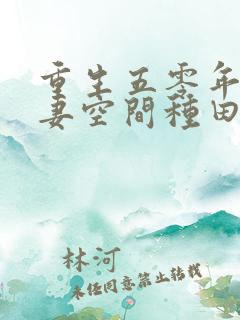 重生五零年
妻空間種田
林河
未经同意禁止转载